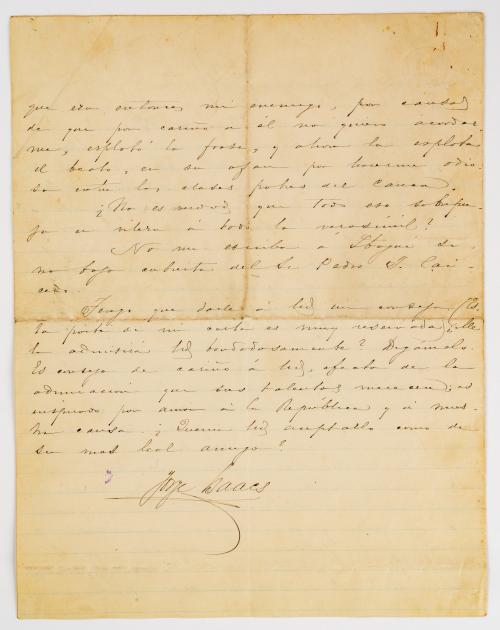 que era entonces mi enemigo, por causas
de que por cariño a él no quiero acordar-
me, explotó la frase, y ahora la explota
el beato, en su afan por hacerme odio-
so entre las clases pobres del Cauca.
¿No es verdad que todo eso sobrepu-
ja en vileza á todo lo verosímil?
No me escriba á Ibagué si
no bajo cubierta del Sr Pedro J. Cai-
cedo.
Tengo que darle á Ud un consejo (Es-
ta parte de mi carta es muy reservada) ¿Me
lo admitirá Ud bondadosamente? Dígamelo.
Es consejo de cariño á Ud, efecto de la
admiracion que sus talentos merecen; es
inspirado por amor á la República y á nues-
tra causa. ¿Querrá Ud aceptarlo como de
su mas leal amigo?
Jorge Isaacs